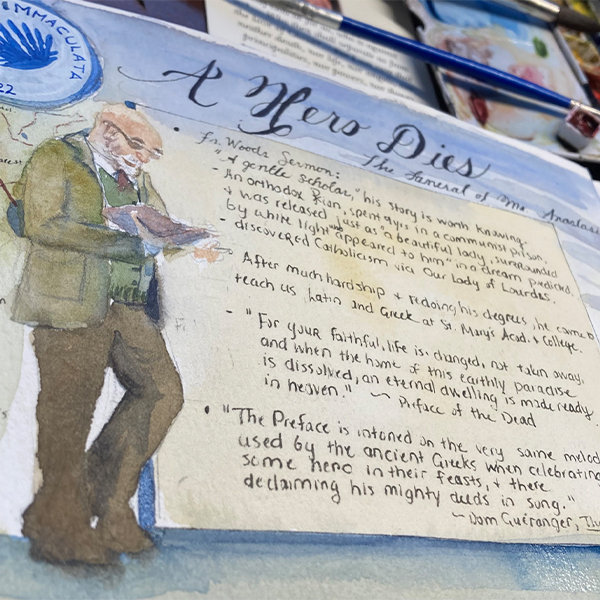 IMMACULATA
22
A Hero Dies
The Funeral of Mr. Anastasi
Fr. Woods Sermon:
"A gentle scholar," his story is worth knowing.
- An orthodox Rian, spent 4 yrs in a communist prison,
& was released just as "a beautiful lady, surrounded
by white light" who "appeared to him" in a dream predicted,
- discovered Catholicism via Our Lady of Lourdes.
After much hardship & redoing his degrees, he came to
teach us Latin and Greek at St. Mary's Acad. & College.
- "For your faithful, life is changed, not taken away,
and when the home of this earthly paradise
is dissolved, an eternal dwelling is made ready
in heaven." ~ Preface of the Dead
• "The Preface is intoned on the very same melod
used by the ancient Greeks when celebrating
some hero in their feasts, & there
declaiming his mighty deeds in song."
~ Dom Guéranger, The